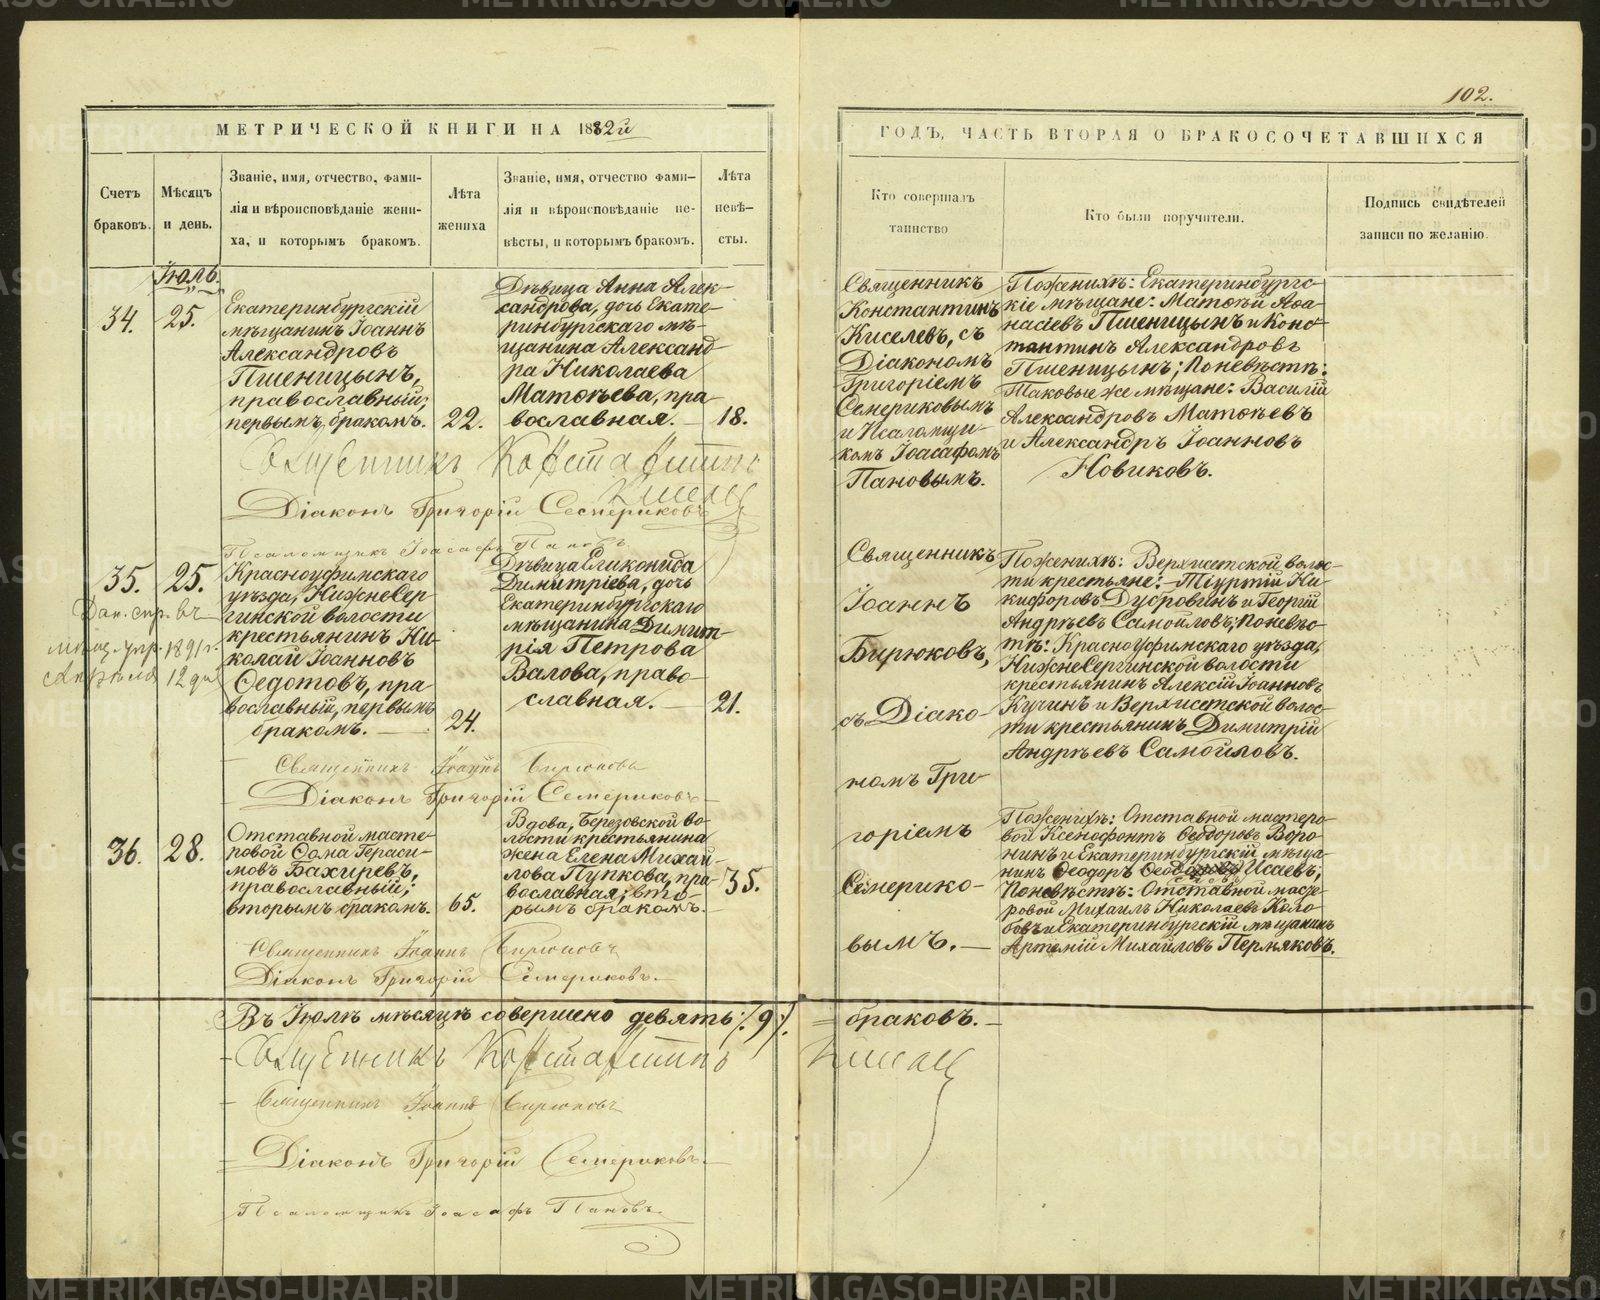 102.
МЕТРИЧЕСКОЙ КНИГИ НА 1882й
ГОДЪ, ЧАСТЬ ВТОРАЯ О БРАКОСОЧЕТАВШИХСЯ
Счетъ
браковъ.
Мѣсяцъ
и день.
Званіе, имя, отчество, фами-
лія и вѣроисповѣданіе жени-
ха, и которымъ бракомъ.
Лѣта
жениха
Званіе, имя, отчество фами-
лія и вѣроисповѣданіе не-
вѣсты, и которымъ бракомъ.
Лѣта
невѣ-
сты.
Кто совершалъ
таинство
Кто были поручители.
Подпись свидѣтелей
записи по желанію.
Іюль.
34.
25.
Екатеринбургскій
мѣщанинъ Іоаннъ
Александровъ
Пшеницынъ,
православный;
первымъ бракомъ.
22.
Дѣвица Анна Алек-
сандрова, дочь Екате-
ринбургскаго мѣ-
щанина Александ-
ра Николаева
Матѳѣева, пра-
вославная.
18.
Священникъ
Константинъ
Киселевъ, съ
Діакономъ
Григоріемъ
Семериковымъ
и Псаломщи-
комъ Іоасафомъ
Пановымъ.
Поженихѣ: Екатеринбургс-
кіе мѣщане: Матѳей Аѳа-
насіевъ Пшеницынъ и Конс-
тантинъ Александровъ
Пшеницынъ; Поневѣстѣ:
Таковые же мѣщане: Василій
Александровъ Матѳѣевъ
и Александръ Іоанновъ
Новиковъ.
Священникъ Константинъ
Киселев
Діаконъ Григорій Семериковъ
Псаломщикъ Іоасафъ Пановъ
35.
25.
Дан. спр. въ
мѣщ. упр. 1891 г.
Апрѣля 12 дня
Красноуфимскаго
уѣзда, НижнеСер-
гинской волости
крестьянинъ Ни-
колай Іоанновъ
Ѳедотовъ, пра-
вославный, первымъ
бракомъ.
24.
Дѣвица Еликонида
Димитріева, дочь
Екатеринбургскаго
мѣщанина Димит-
рія Петрова
Валова, право-
славная.
21.
Священникъ
Іоаннъ
Бирюковъ,
съ Діако-
номъ Гри-
горіемъ
Семерико-
вымъ.
Поженихѣ: Верхисетской волос-
ти крестьяне: Ни-
кифоровъ Дубровинъ и Георгій
Андрѣевъ Самойловъ; поневѣс-
тѣ: Красноуфимскаго уѣзда,
НижнеСергинской волости
крестьянинъ Алексій Іоанновъ
Кучинъ и Верхисетской волос-
ти крестьянинъ Димитрій
Андрѣевъ Самойловъ.
Священникъ Іоаннъ Бирюковъ
Діаконъ Григорій Семериковъ
36.
28.
Отставной масте-
ровой Ѳома Гераси-
мовъ Бахиревъ,
православный;
вторымъ бракомъ.
65.
Вдова, Березовской во-
лости крестьянина
жена Елена Михай-
лова Пупкова, пра-
вославная; вто-
рымъ бракомъ.
35.
Поженихѣ: Отставной мастеро-
вой Ксенофонтъ Ѳеодоровъ Воро-
нинъ и Екатеринбургскій мѣща-
нинъ Ѳеодоръ Исаевъ;
Поневѣстѣ: Отставной масте-
ровой Михаилъ Николаевъ Коло-
бовъ и Екатеринбургскій мѣщанинъ
Артемій Михайловъ Пермяковъ.
Священникъ Іоаннъ Бирюковъ
Діаконъ Григорій Семериковъ.
Въ Іюлѣ мѣсяцѣ совершено девять /.9/. браковъ.
Священникъ Константинъ Киселев
Священникъ Іоаннъ Бирюковъ
Діаконъ Григорій Семериковъ.
Псаломщикъ Іоасафъ Пановъ.
METRIKI.GASO-URAL.RU